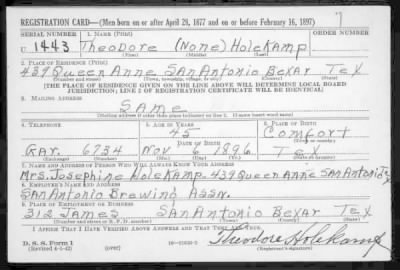 REGISTRATION CARD—(Men born on or after April 28, 1877 and on or before February 16, 1897)
SERIAL NUMBER 1. NAME (Print) ORDER NUMBER
U 1443 Theodore (None) Holekamp
2. PLACE OF RESIDENCE (Print)
439 Queen Anne San Antonio Bexar Tex
(Number and street) (Town, township, village, or city) (County) (State)
[THE PLACE OF RESIDENCE GIVEN ON THE LINE ABOVE WILL DETERMINE LOCAL BOARD
JURISDICTION; LINE 2 OF REGISTRATION CERTIFICATE WILL BE IDENTICAL]
3. MAILING ADDRESS
Same
[Mailing address if other than place indicated on line 2. If same insert word same]
4. TELEPHONE 5. AGE IN YEARS 6. PLACE OF BIRTH
45 Comfort
DATE OF BIRTH (Town or county)
Gar. 6734 Nov 6 1896 Tex
(Exchange) (Number) (Mo.) (Day) (Yr.) (State or country)
7. NAME AND ADDRESS OF PERSON WHO WILL ALWAYS KNOW YOUR ADDRESS
Mrs. Josephine Holekamp. 439 Queen Anne San Antonio Tex
8. EMPLOYER'S NAME AND ADDRESS
San Antonio Brewing Assn.
9. PLACE OF EMPLOYMENT OR BUSINESS
312 James San Antonio Bexar Tex
(Number and street or R. F. D. number) (Town) (County) (State)
I AFFIRM THAT I HAVE VERIFIED ABOVE ANSWERS AND THAT THEY ARE TRUE.
D. S. S. Form 1
(Revised 4-1-42) (over) Theodore Holekamp
(Registrant's signature)